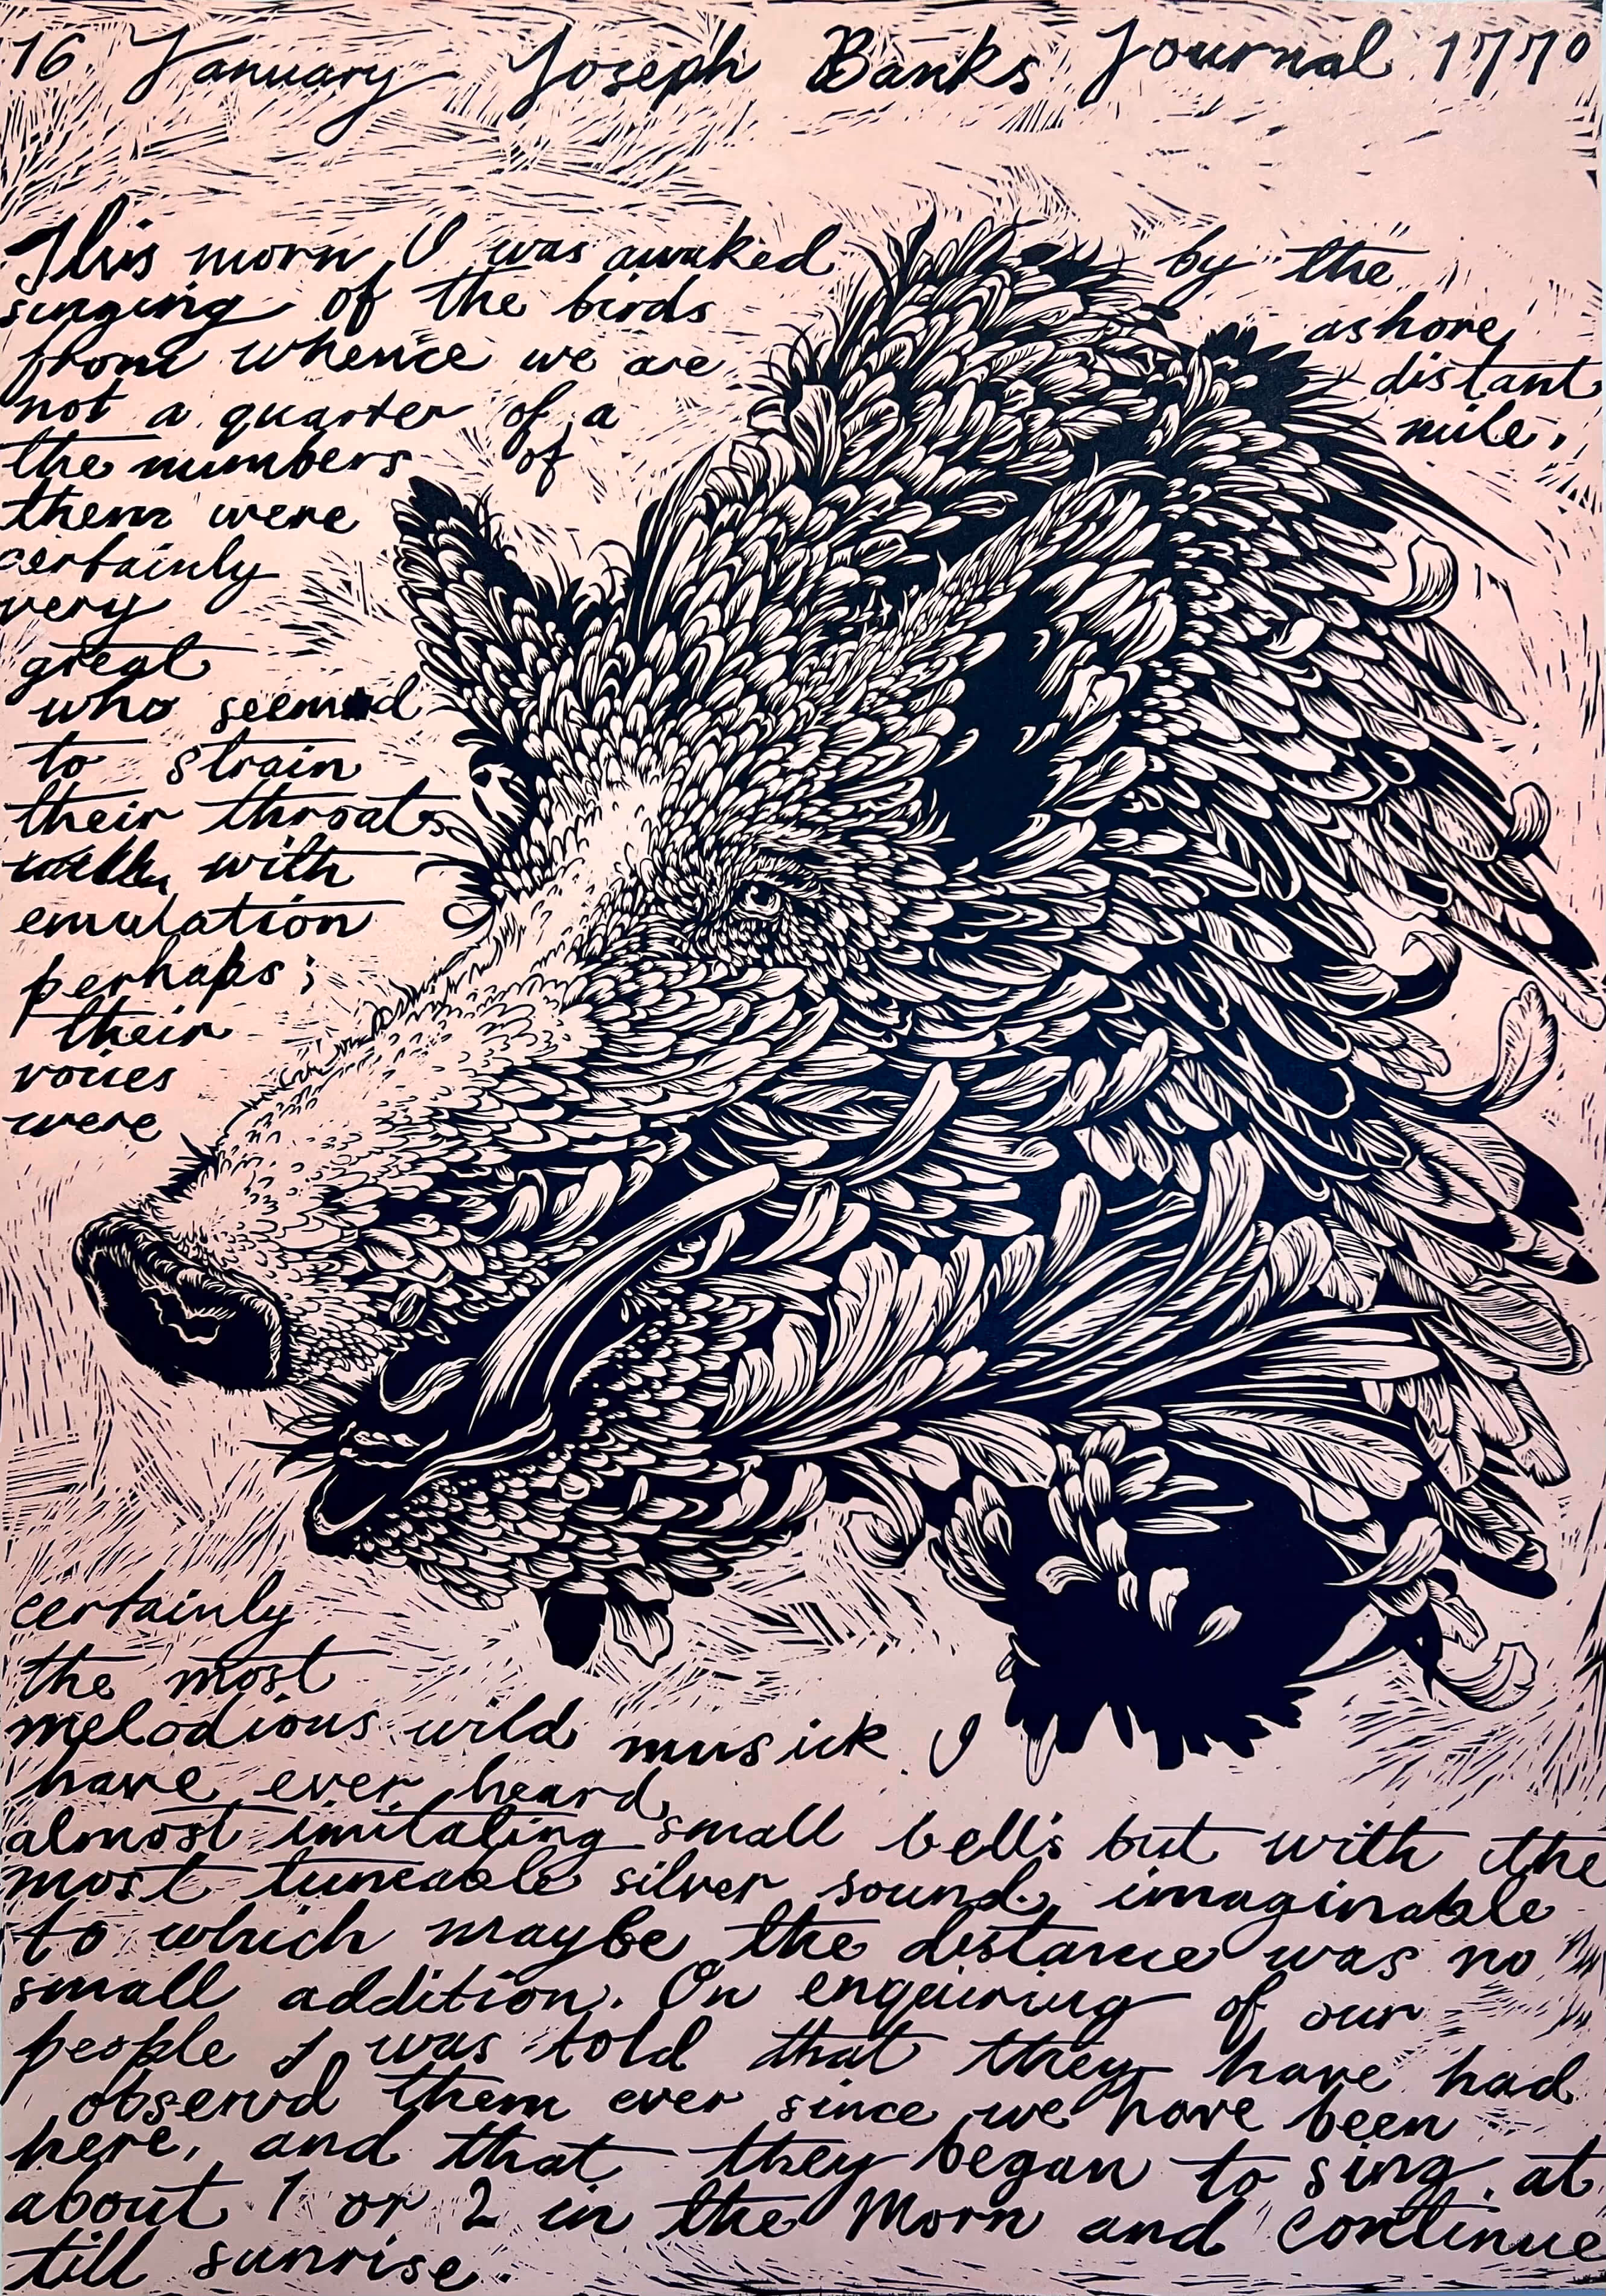 16 January Joseph Banks Journal 1770
This morn I was awaked by the
singing of the birds ashore,
from whence we are distant
not a quarter of a mile,
the numbers of
them were
certainly
very
great
who seemd
to strain
their throats
with
emulation
perhaps;
their
voices
were
certainly
the most
melodious wild musick I
have ever heard,
almost imitating small bells but with the
most tuneable silver sound imaginable
to which maybe the distance was no
small addition. On enquiring of our
people I was told that they have had
observd them ever since we have been
here, and that they began to sing at
about 1 or 2 in the Morn and continue
till sunrise.